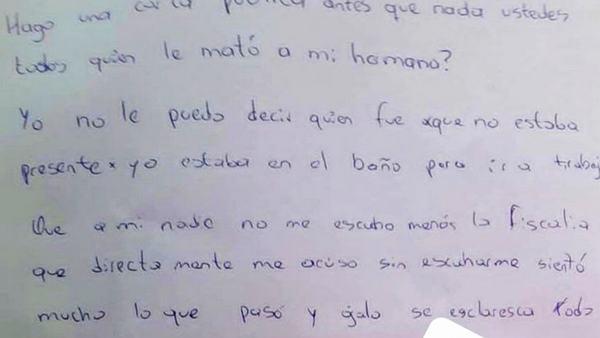 Hago una carta publica antes que nada ustedes
todos quien le mató a mi hermano?
Yo no le puedo decir quien fue xque no estaba
presente x yo estaba en el baño para ir a trabaj
Que a mi nade no me escubo menós la fiscalia
que directa mente me acuso sin escuharme sientó
mucho lo que pasó y ójalo se esclaresca todo